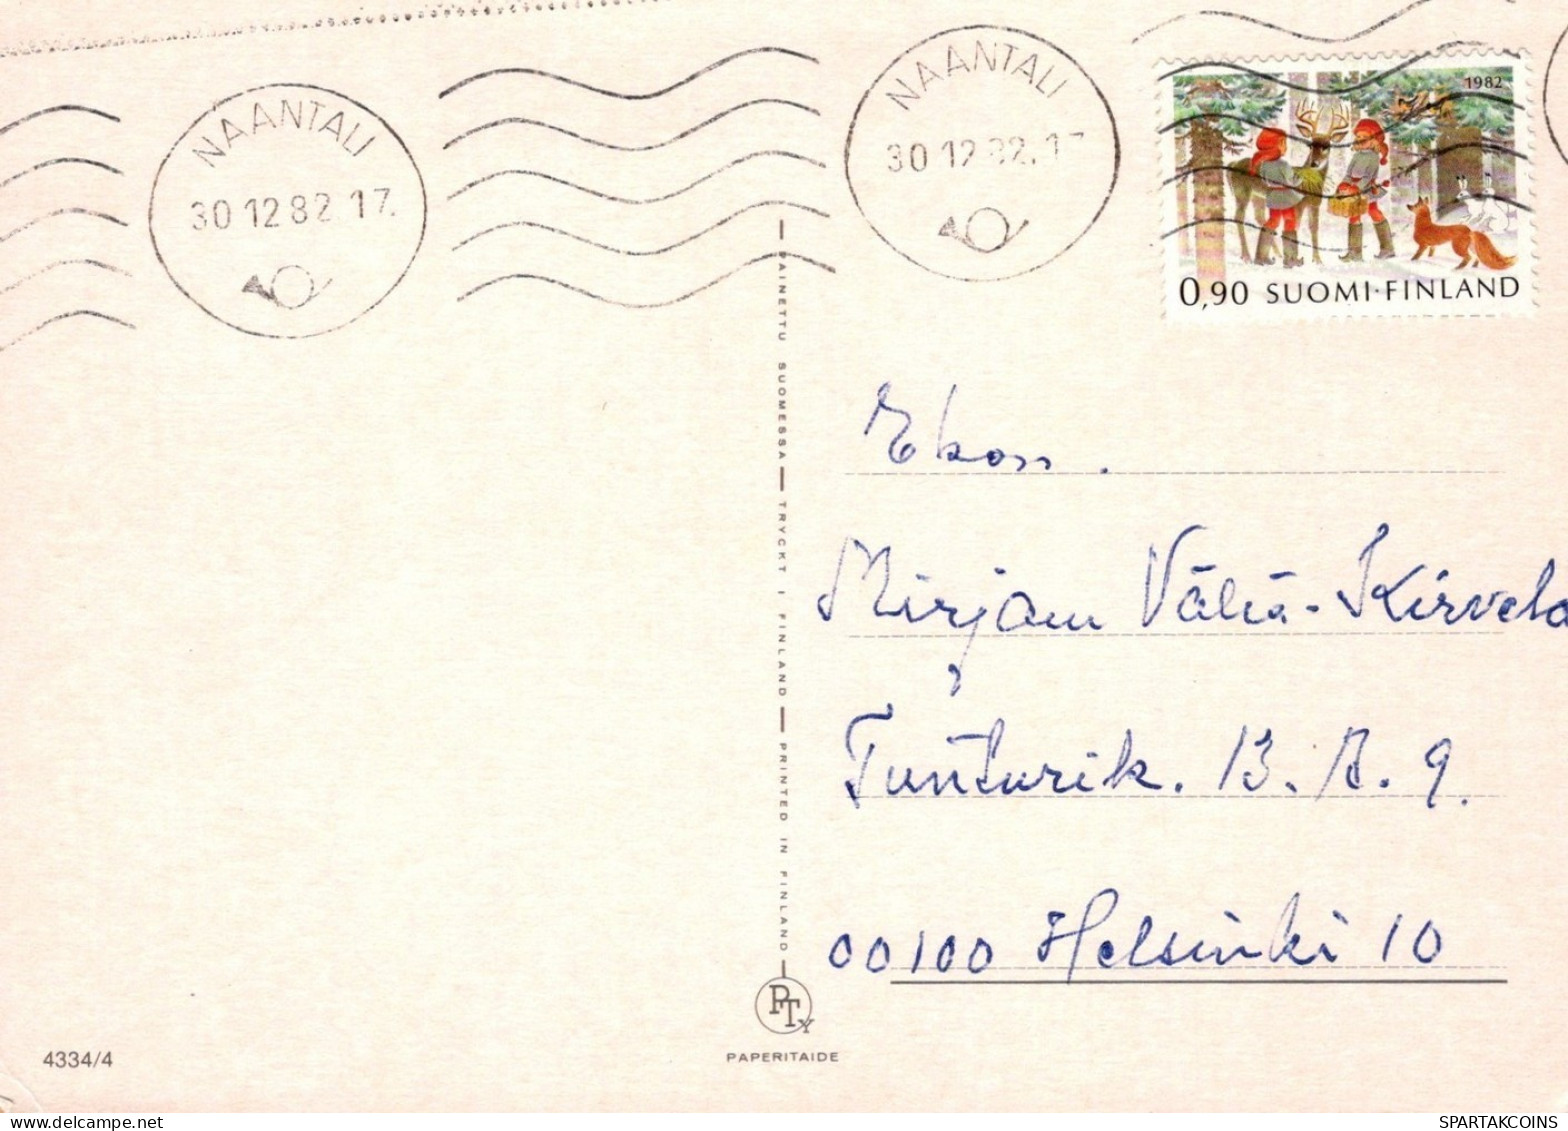 NAANTALI
30 12 82 17.
NAANTALI
30 12 82. 17
1982
0,90 SUOMI·FINLAND
PAINETTU SUOMESSA — TRYCKT I FINLAND — PRINTED IN FINLAND
Ekon.
Mirjam Väliä-Kirvelä
Tunturik. 13. A. 9.
00100 Helsinki 10
PTy
PAPERITAIDE
4334/4
SPARTAKCOINS